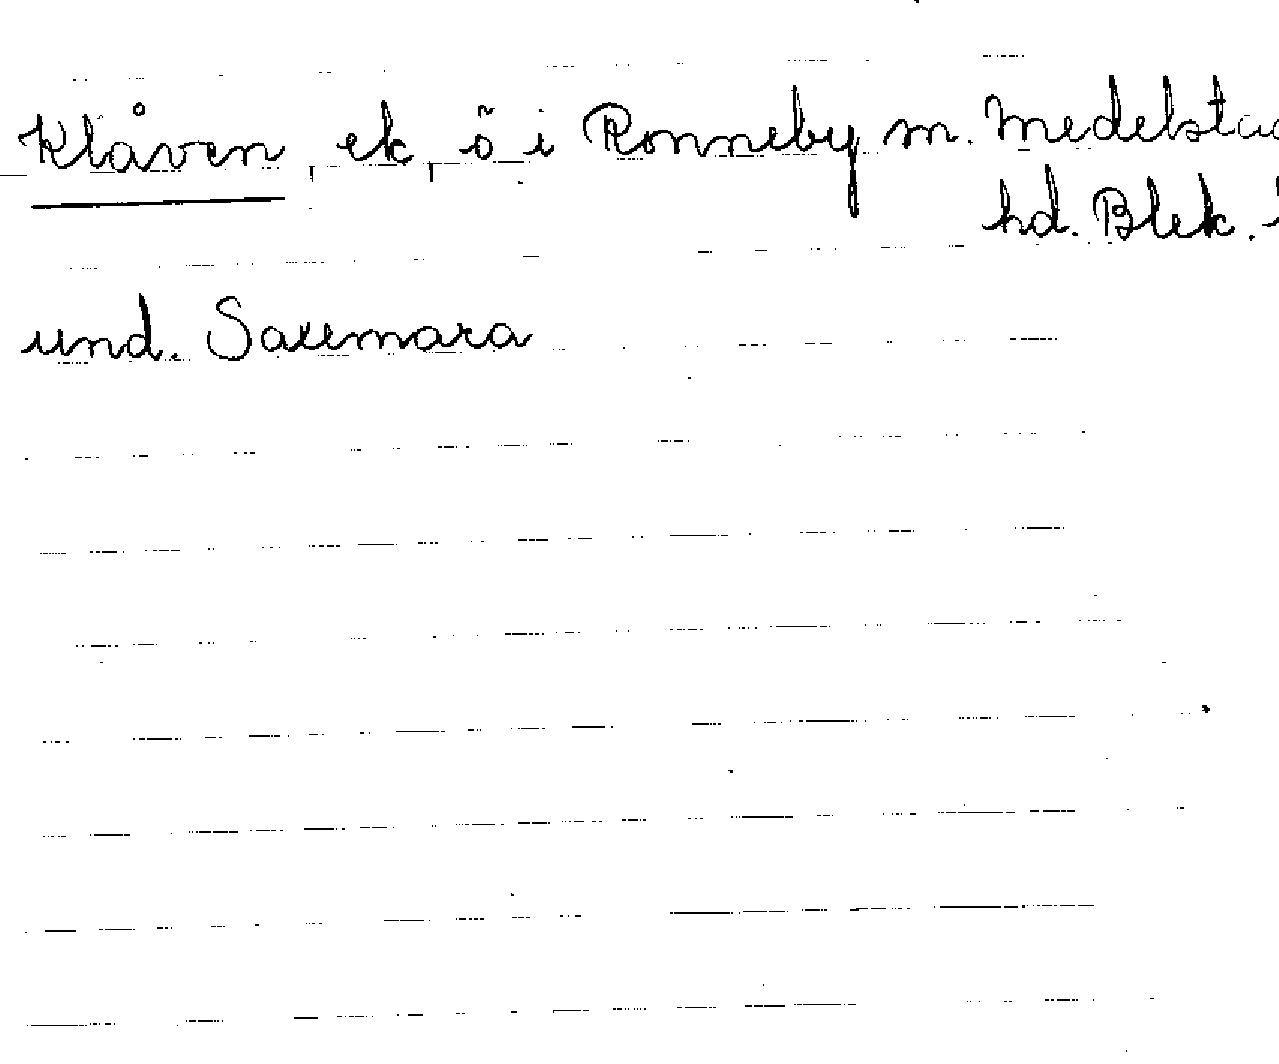 Klåven, ek, ö i Ronneby m. Medelstad
hd. Blek.
und. Saxemara